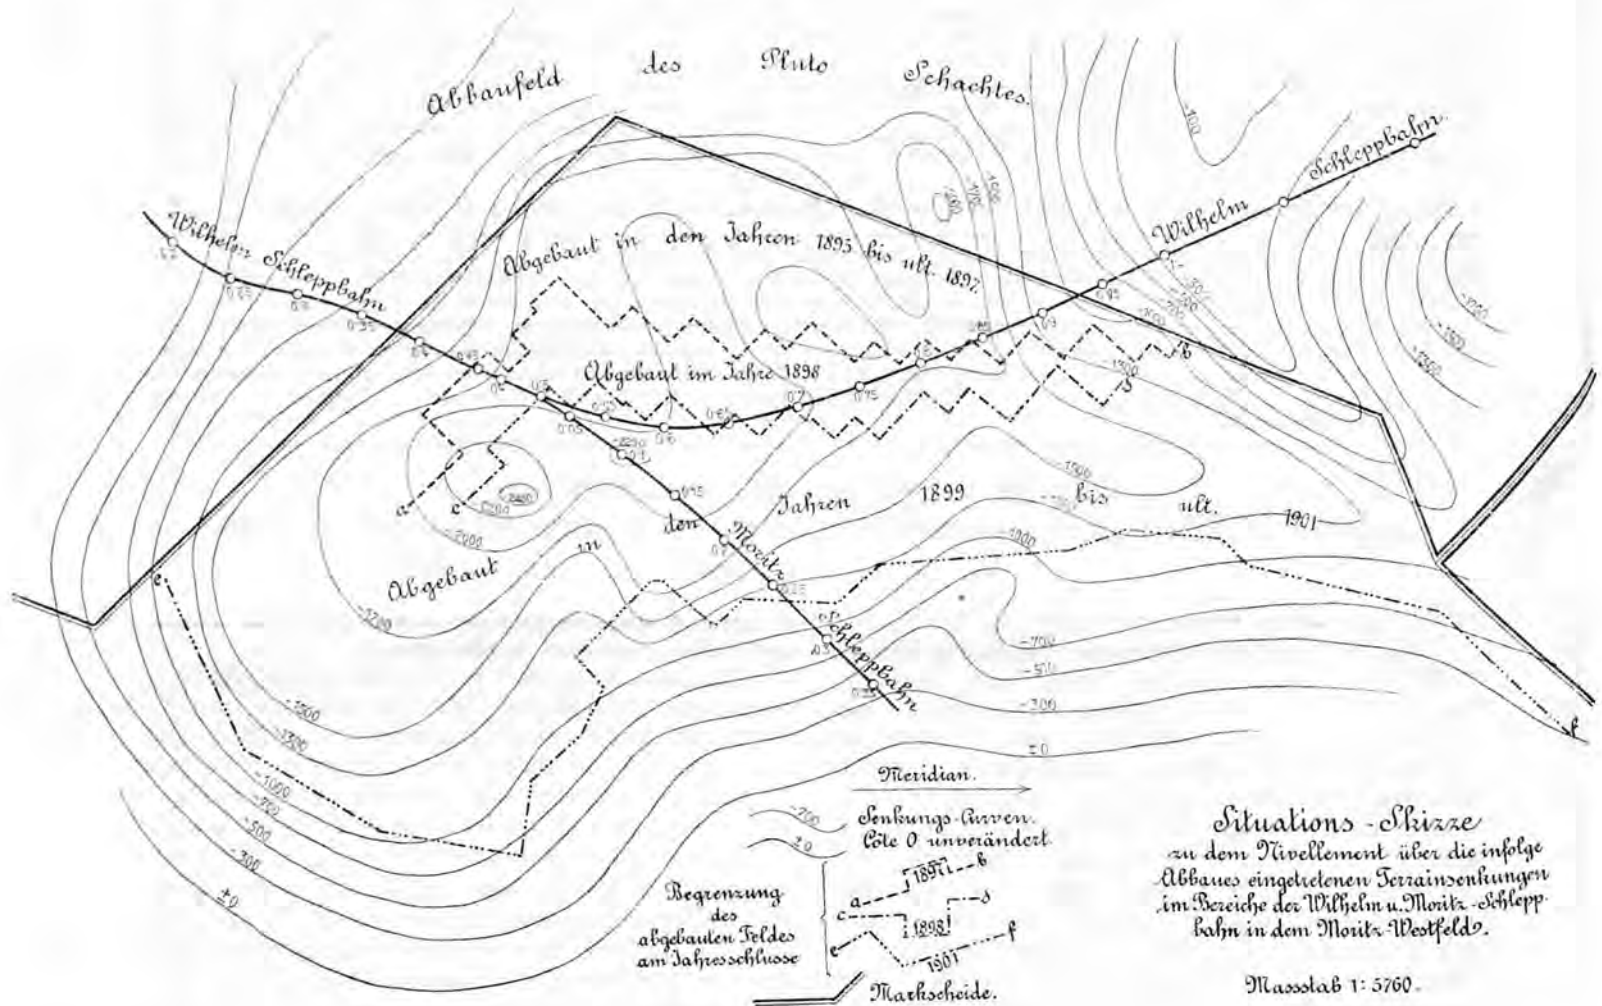 Abbaufeld des Pluto Schachtes.
Wilhelm Schleppbahn
Wilhelm Schleppbahn.
Abgebaut in den Jahren 1895 bis ult. 1897.
Abgebaut im Jahre 1898
Abgebaut in den Jahren 1899 bis ult. 1901
Moritz Schleppbahn
a
c
e
b
d
f
-100
-1500
-1300
-1500
-1000
-2000
-1700
-1500
-1300
-1000
-700
-500
-300
±0
-700
-500
-300
±0
0.65
0.6
0.65
0.7
0.75
0.85
0.9
0.95
0.05
0.3
0.35
Meridian.
-700
Senkungs-Curven.
±0
Côte 0 unverändert.
Begrenzung
des
abgebauten Feldes
am Jahresschlusse
a 1897 b
c 1898 d
e 1901 f
Markscheide.
Situations-Skizze
zu dem Nivellement über die infolge
Abbaues eingetretenen Terrainsenkungen
im Bereiche der Wilhelm u. Moritz-Schlepp-
bahn in dem Moritz-Westfeld.
Massstab 1:5760.